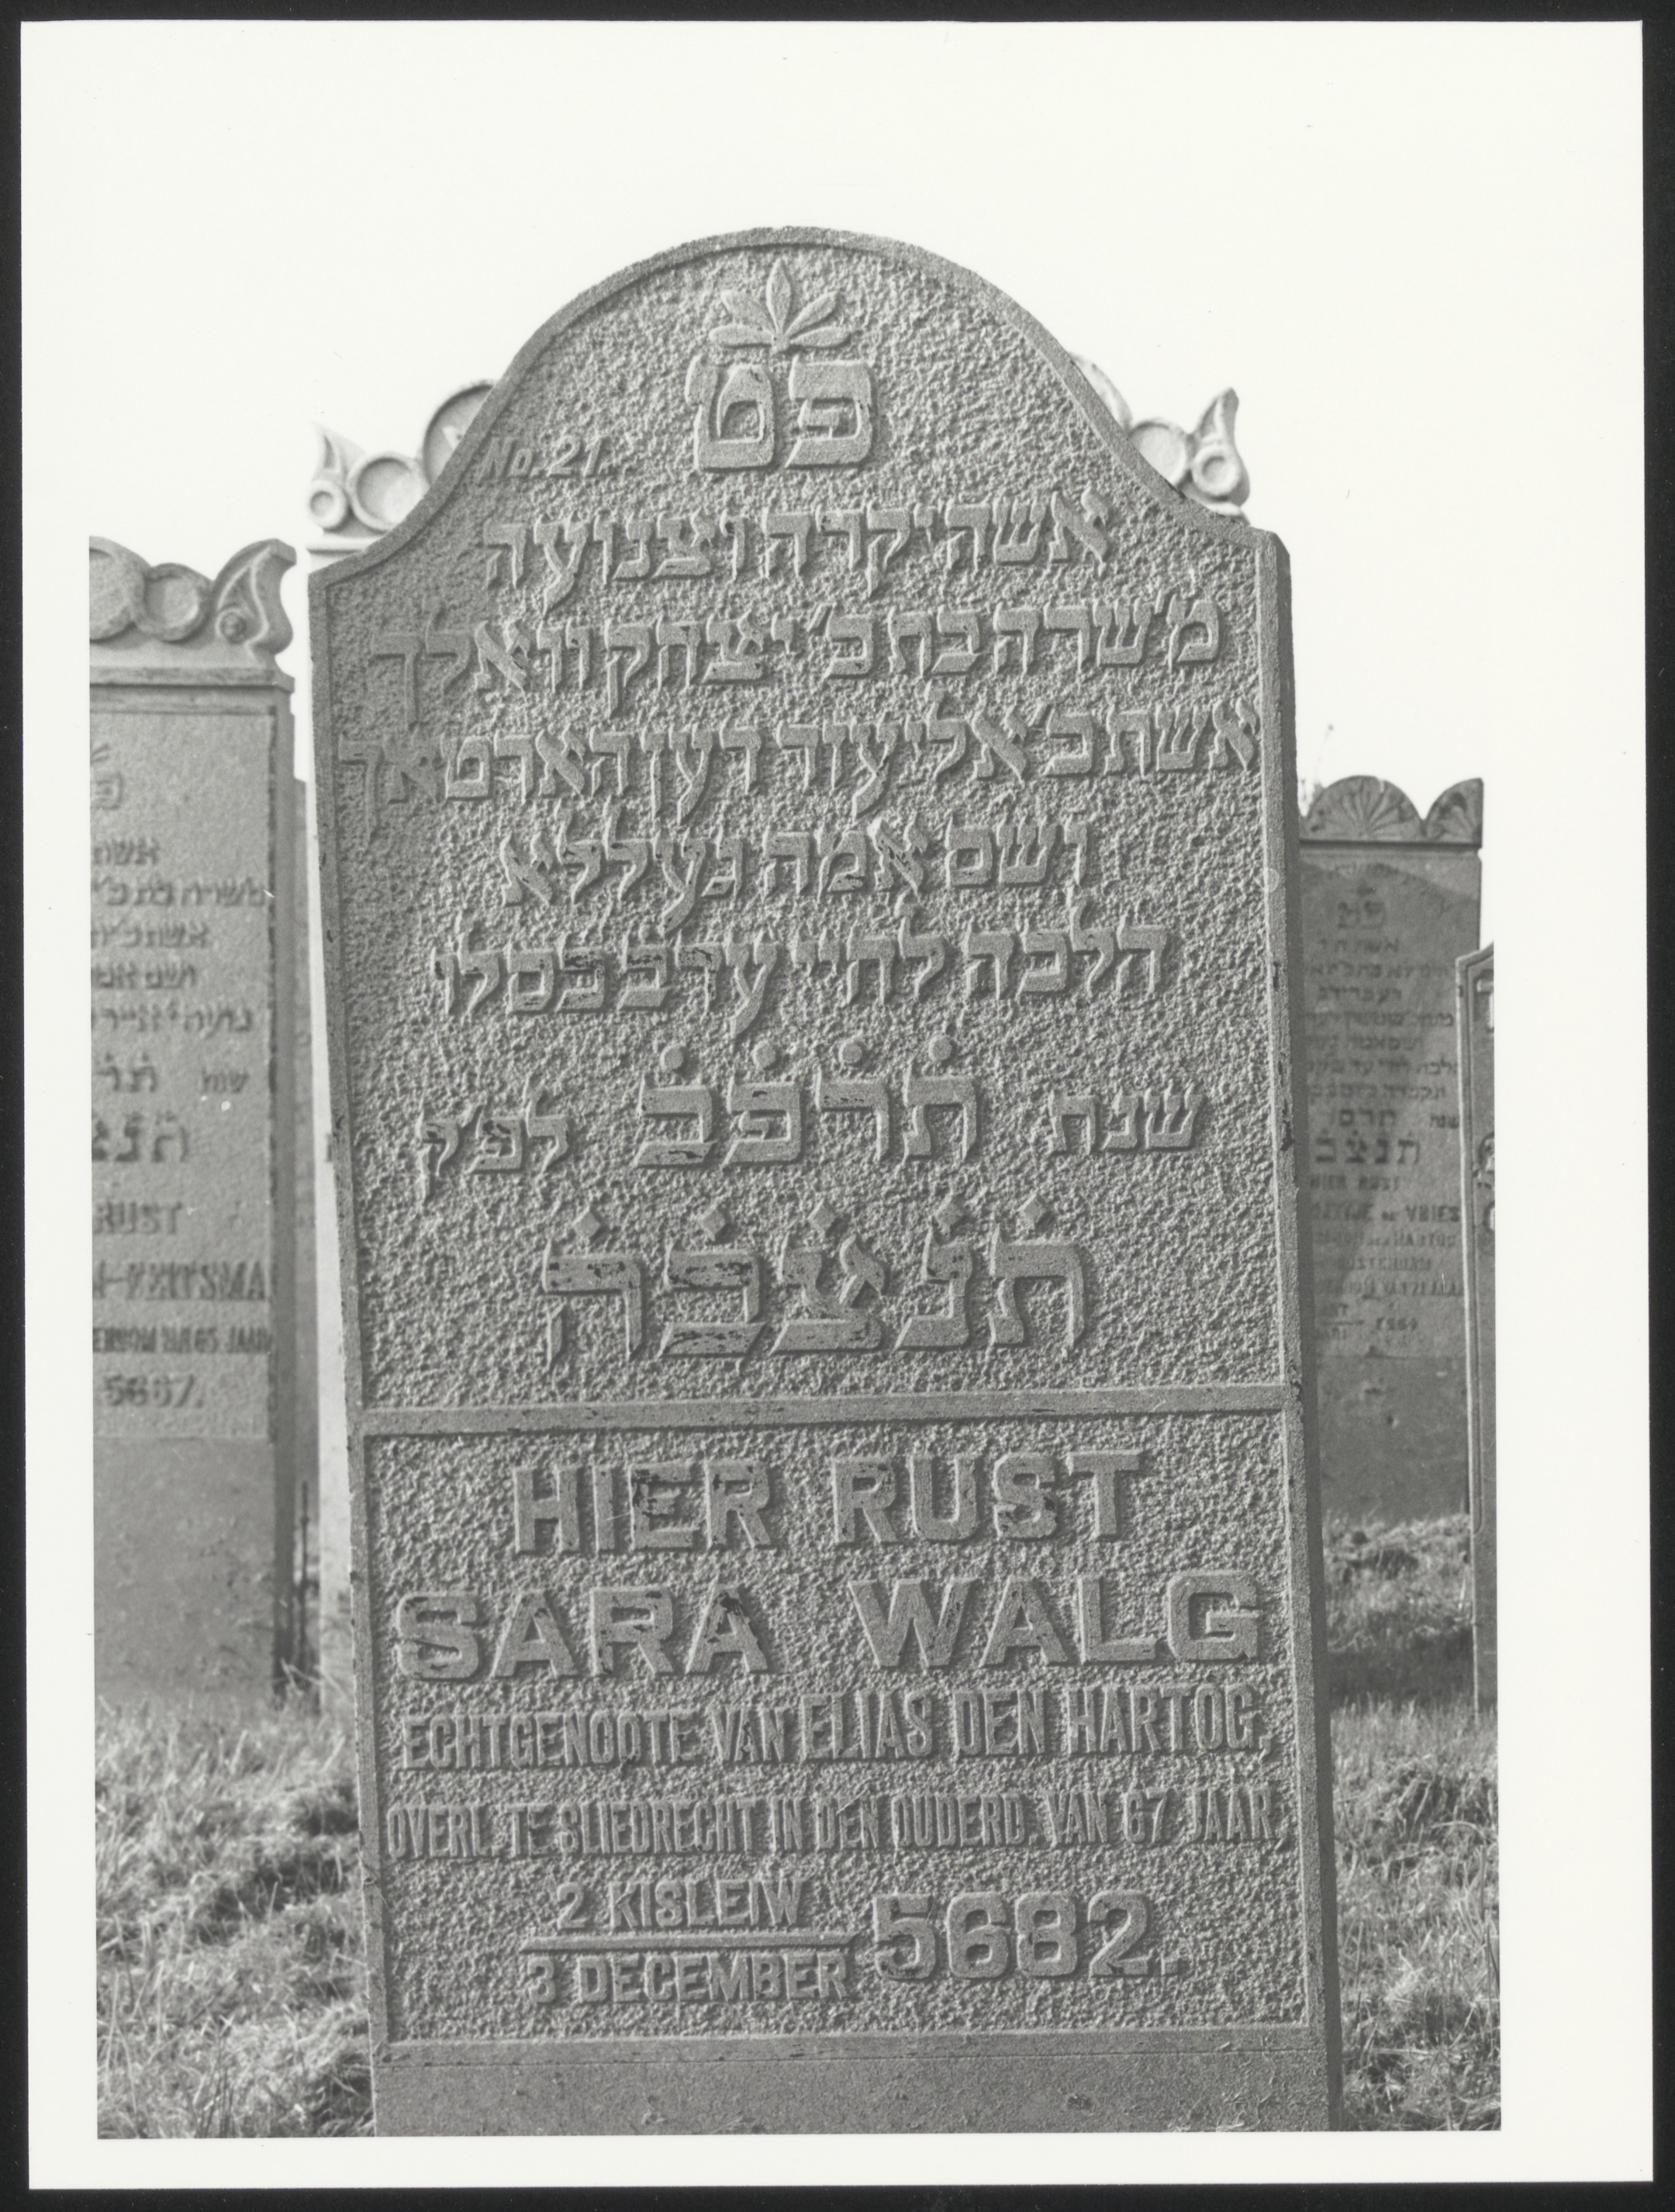 פט
No. 21.
אשה יקרה וצנועה
מ' שרה בת כ' יצחק וואלך
אשת כ' אליעזר דען הארטאך
ושם אמה געללא
הלכה לחיי ערב ב כסלו
שנת תרפב לפ'ק
תנצבה
HIER RUST
SARA WALG
ECHTGENOOTE VAN ELIAS DEN HARTOG,
OVERL. TE SLIEDRECHT IN DEN OUDERD. VAN 67 JAAR,
2 KISLEIW
3 DECEMBER 5682.
אשת
אשת כ'
ושם אמ
תנצ
RUST
VEITSMA
JAAR
5667.
תנצבה
HIER RUST
VRIES